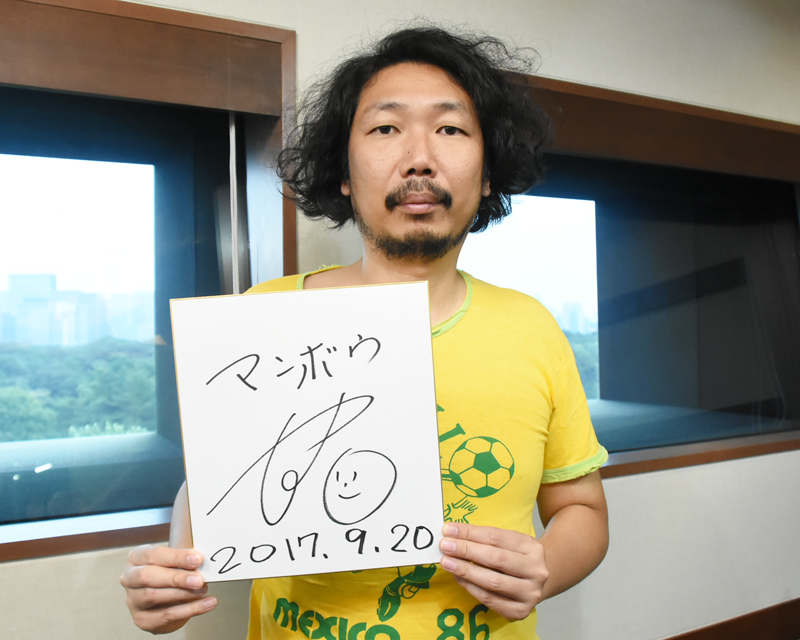 マンボウ
2017.9.20
MEXICO 86